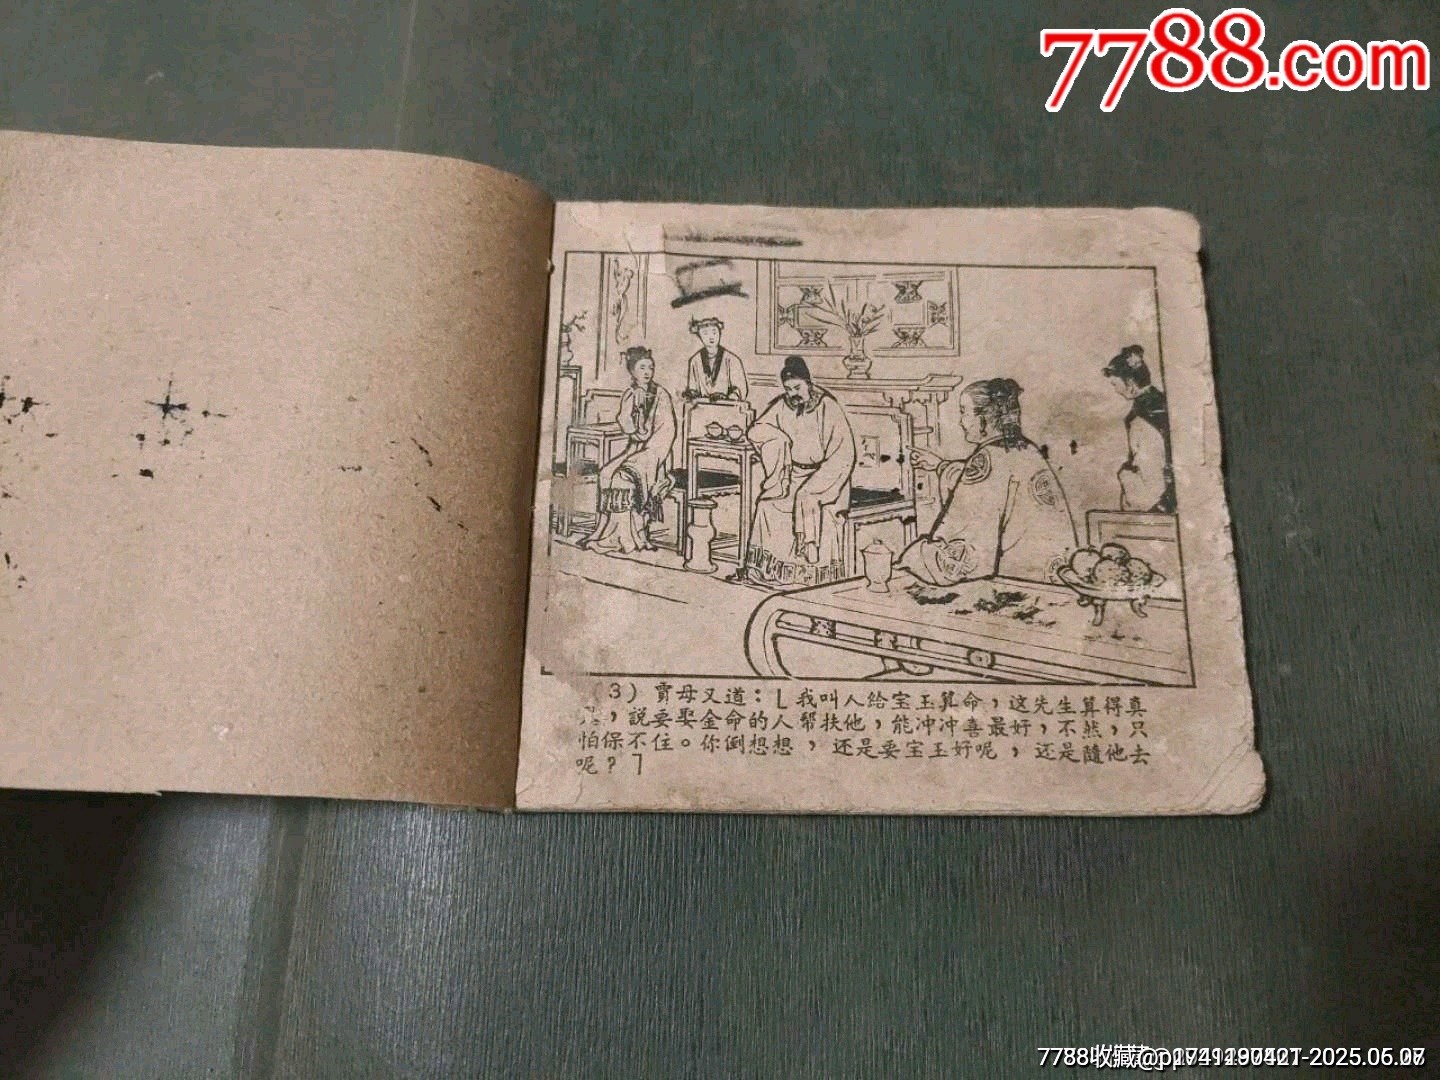 7788.com
(3) 賈母又道：「我叫人给宝玉算命，这先生算得真
，説要娶金命的人帮扶他，能冲冲喜最好，不然，只
怕保不住。你倒想想，还是要宝玉好呢，还是隨他去
呢？」
7788收藏@p1741290421-2025.05.07